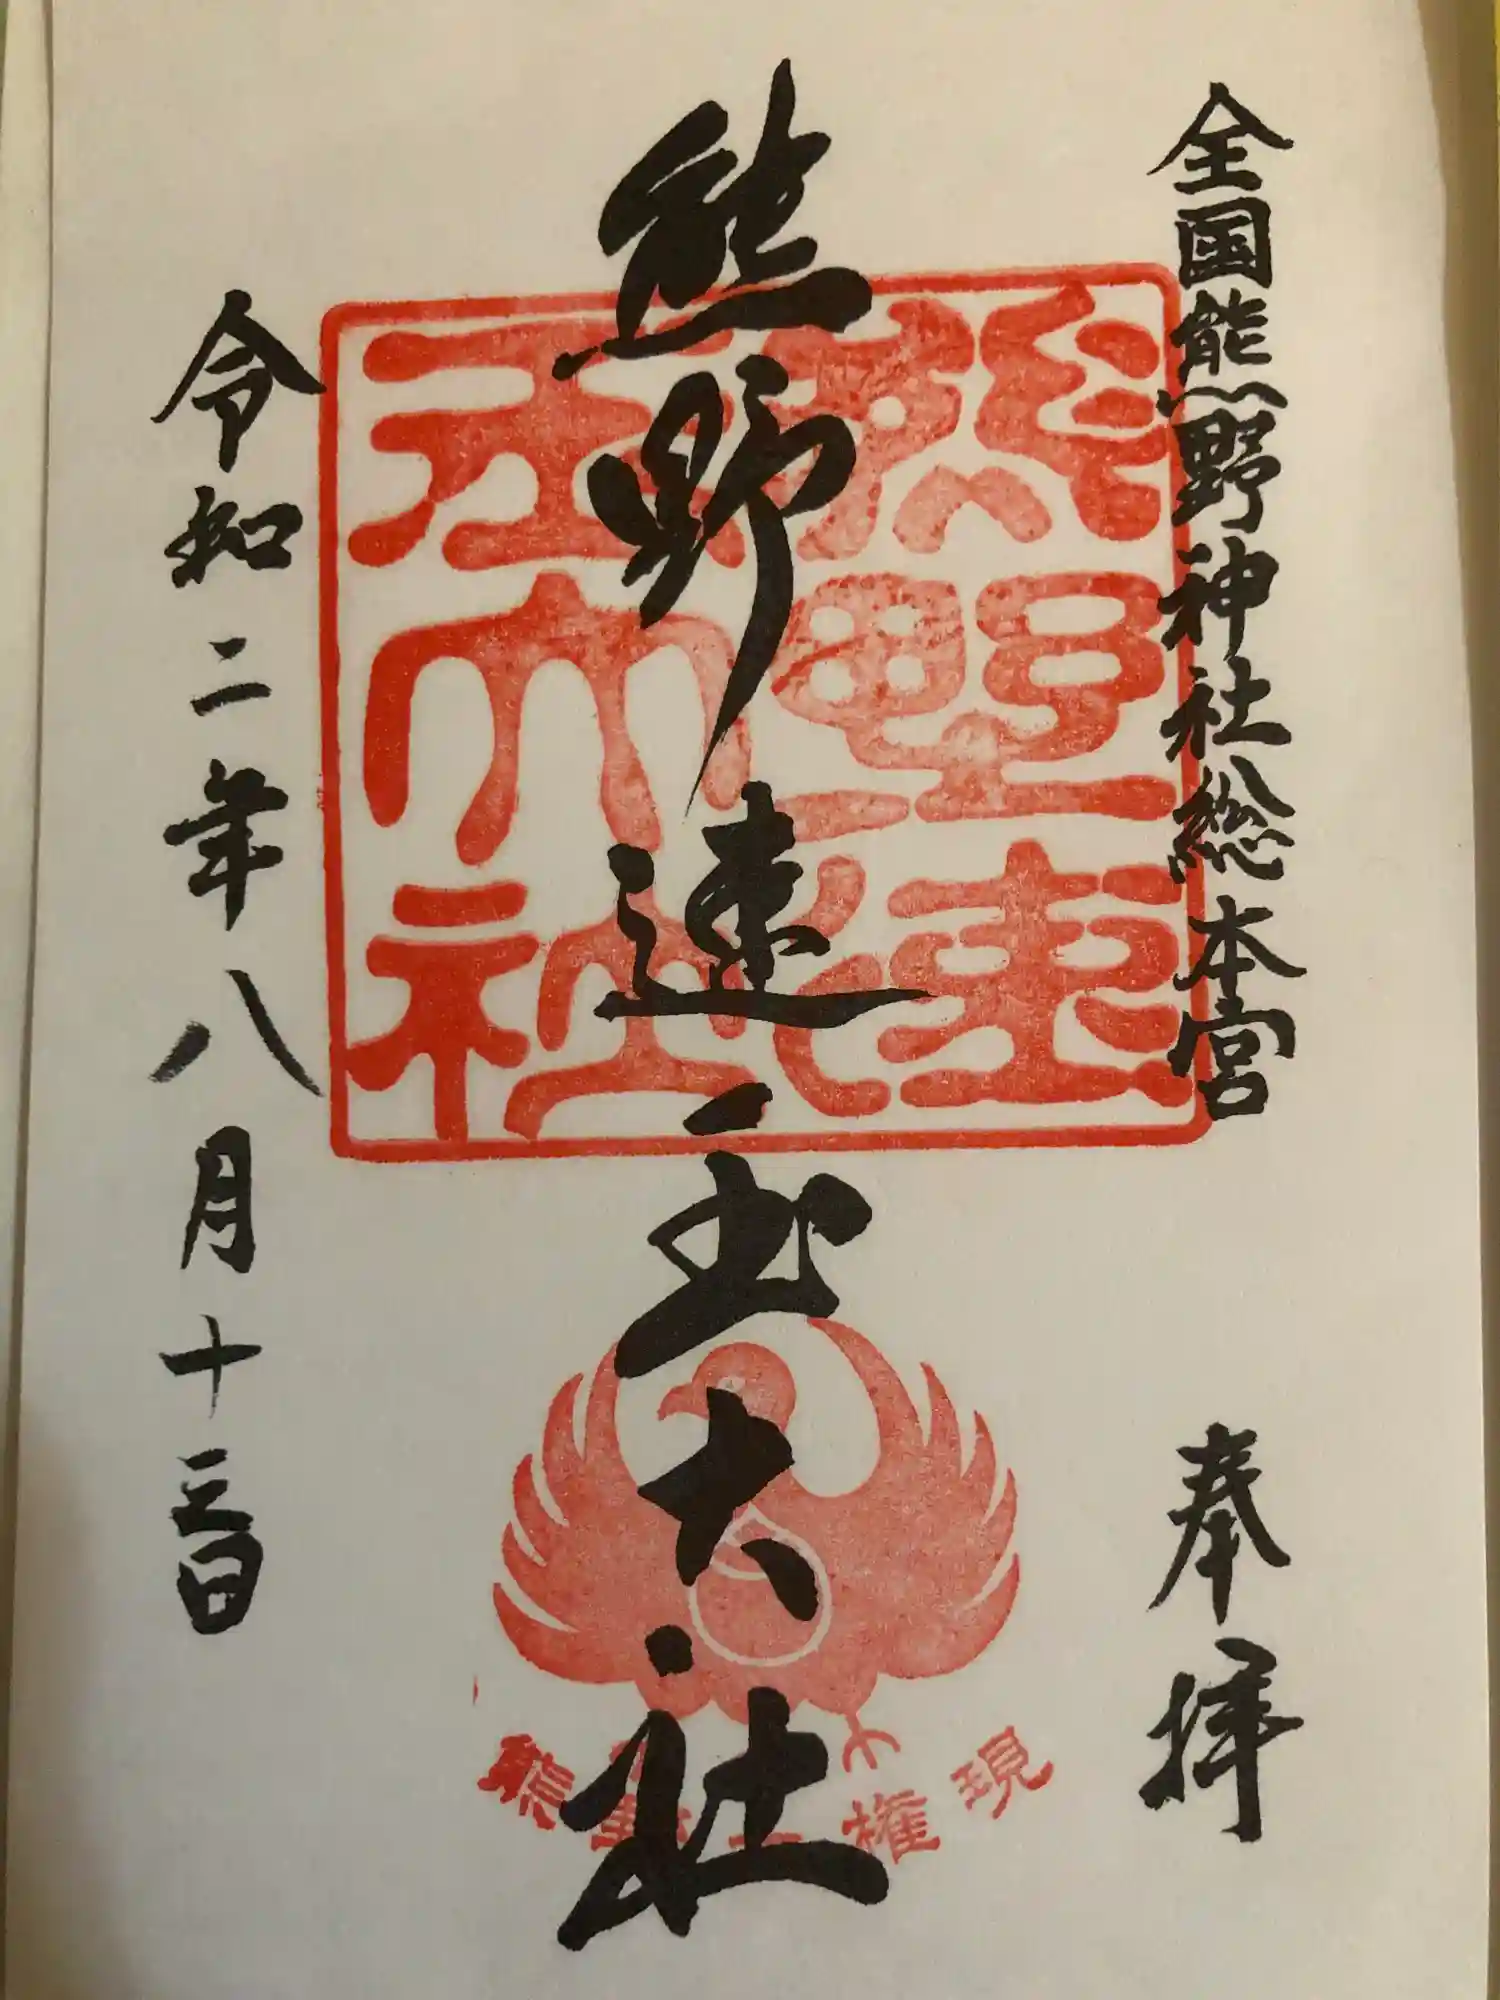 全国熊野神社総本宮
奉拝
熊野速玉大社
熊野速玉大社
熊野大権現
令和二年八月十三日